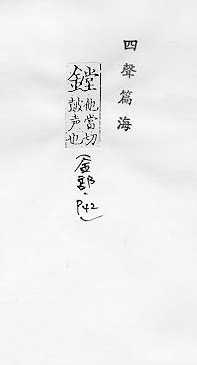 四聲篇海
鏜
他當切
鼓声也
(金部. P42)